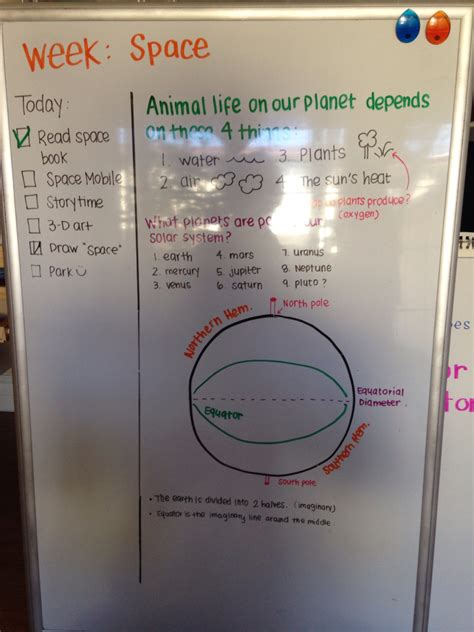 WEEK: SPACE
Today:
Read space
book
Space Mobile
Storytime
3-D art
Draw "space"
Park
Animal life on our planet depends
on these 4 things:
1. water
3. Plants
2. air
4. The sun's heat
plants produce?
(oxygen)
What planets are our
solar system?
1. earth
4. mars
7. uranus
2. mercury
5. jupiter
8. Neptune
3. venus
6. saturn
9. pluto?
North pole
Northern Hem.
Equatorial
Diameter.
Equator
Southern Hem.
South pole
• The earth is divided into 2 halves. (imaginary)
• Equator is the imaginary line around the middle.